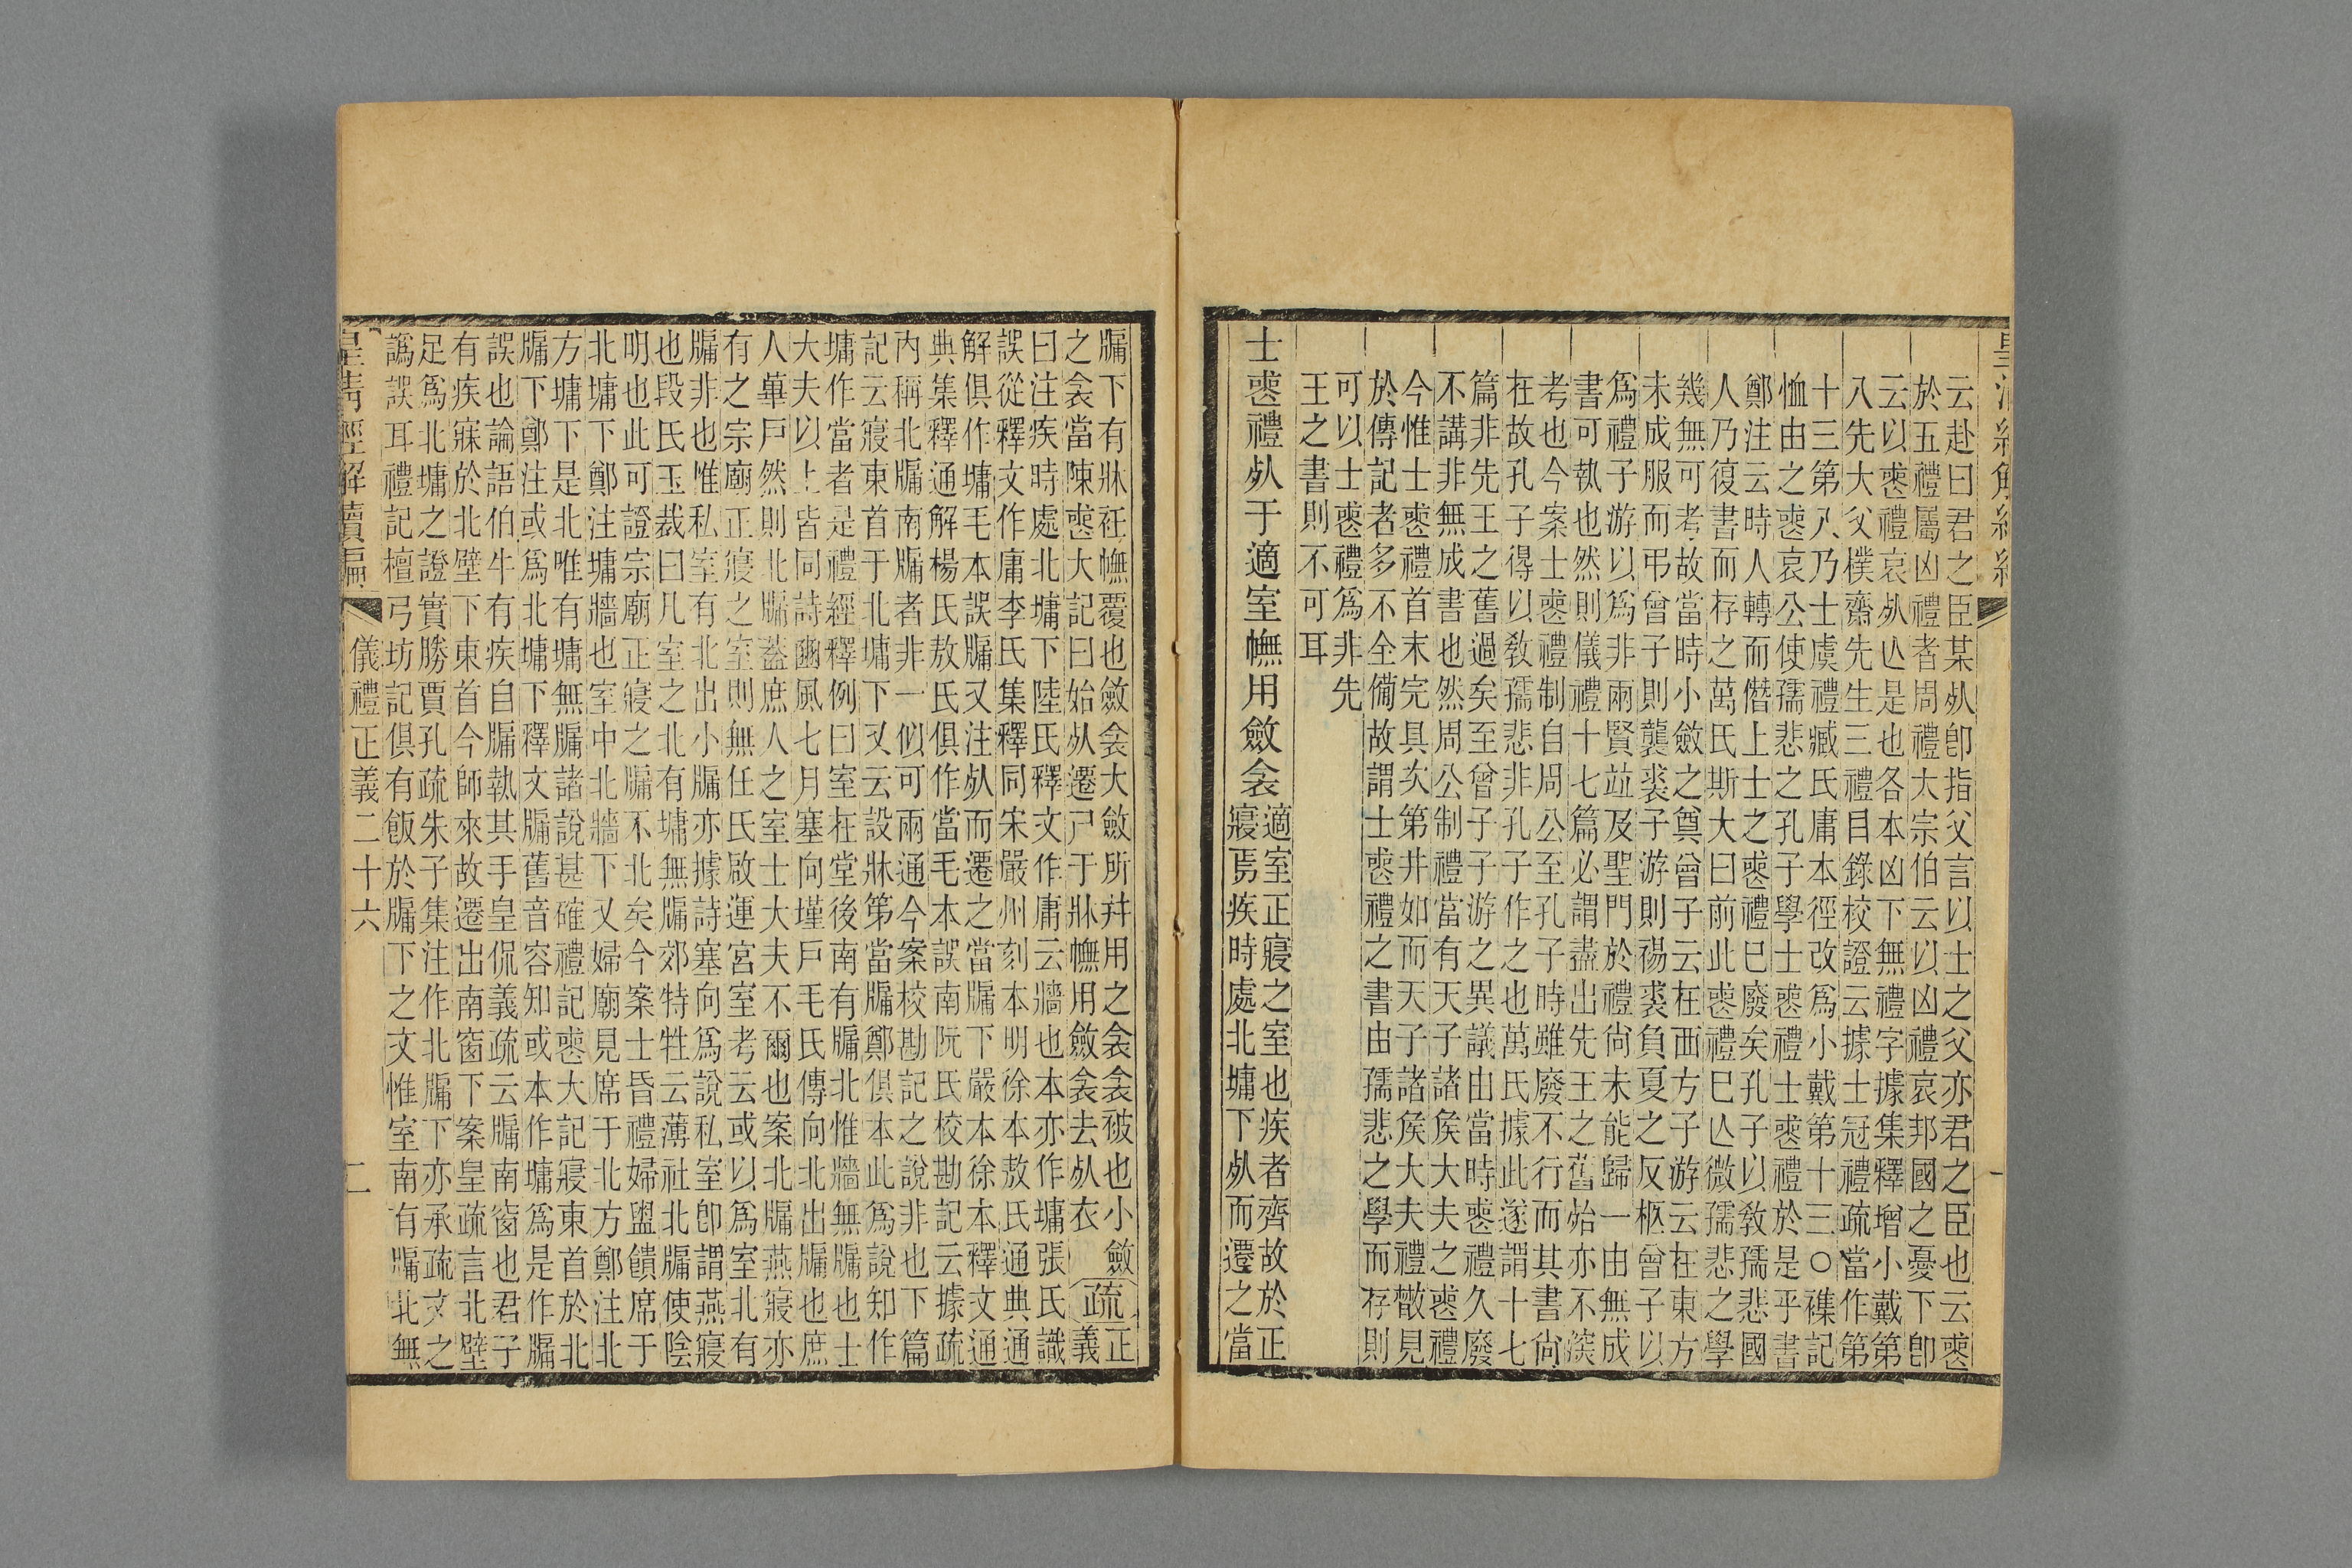 云赴曰君之臣某死卽指父言以士之父亦君之臣也云喪
於五禮屬凶禮者周禮大宗伯云以凶禮哀邦國之憂下卽
云以喪禮哀死亾是也各本凶下無禮字據集釋增小戴第
八先大父樸齋先生三禮目錄校證云據士冠禮疏當作第
十三第八乃士虞禮臧氏庸本徑改爲小戴第十三〇襍記
恤由之喪哀公使孺悲之孔子學士喪禮士喪禮於是乎書
鄭注云時人轉而僭上士之喪禮巳廢矣孔子以敎孺悲國
人乃復書而存之萬氏斯大曰前此喪禮巳亾微孺悲之學
幾無可考故當時小斂之奠曾子云在西方子游云在東方
未成服而弔曾子則襲裘子游則裼裘負夏之反柩曾子以
爲禮子游以爲非兩賢竝及聖門於禮尙未能歸一由無成
書可執也然則儀禮十七篇必謂盡出先王之舊殆亦不深
考也今案士喪禮制自周公至孔子時雖廢不行而其書尙
在故孔子得以敎孺悲非孔子作之也萬氏據此遂謂十七
篇非先王之舊過矣至曾子子游之異議由當時喪禮久廢
不講非無成書也然周公制禮當有天子諸矦大夫之喪禮
今惟士喪禮首末完具次第井如而天子諸矦大夫禮散見
於傳記者多不全備故謂士喪禮之書由孺悲之學而存則
可以士喪禮爲非先
王之書則不可耳
士喪禮死于適室幠用斂衾
適室正寢之室也疾者齊故於正
寢焉疾時處北墉下死而遷之當
牖下有牀衽幠覆也斂衾大斂所幷用之衾衾被也小斂
之衾當陳喪大記曰始死遷尸于牀幠用斂衾去死衣
疏
正
義
曰注疾時處北墉下陸氏釋文作庸云牆也本亦作墉張氏識
誤從釋文作庸李氏集釋同宋嚴州刻本明徐本敖氏通典通
解俱作墉毛本誤牖又注死而遷之當牖下嚴本徐本釋文通
典集釋通解楊氏敖氏俱作當毛本誤南阮氏校勘記云據疏
內稱北牖南牖者非一似可兩通今案校勘記之說非也下篇
記云寢東首于北墉下又云設牀第當牖鄭俱本此爲說知作
墉作當者是禮經釋例曰室在堂後南有牖北惟牆無牖也士
大夫以上皆同詩豳風七月塞向墐戶毛氏傳向北出牖也庶
人蓽戶然則北牖蓋庶人之室士大夫不爾也案北牖燕寢亦
有之宗廟正寢之室則無任氏啟運宮室考云或以爲室北有
牖非也惟私室有北出小牖亦據詩塞向爲說私室卽謂燕寢
也段氏玉裁曰凡室之北有墉無牖郊特牲云薄社北牖使陰
明也此可證宗廟正寢之牖不北矣今案士昏禮婦盥饋席于
北墉下鄭注墉牆也室中北牆下又婦廟見席于北方鄭注北
方墉下是北唯有墉無牖諸說甚確禮記喪大記寢東首於北
牖下鄭注或爲北墉下釋文牖舊音容知或本作墉爲是作牖
誤也論語伯牛有疾自牖執其手皇侃義疏云牖南窗也君子
有疾寐於北壁下東首今師來故遷出南窗下案皇疏言北壁
足爲北墉之證實勝賈孔疏朱子集注作北牖下亦承疏文之
譌誤耳禮記檀弓坊記俱有飯於牖下之文惟室南有牖北無
皇清經解續編 儀禮正義二十六 二